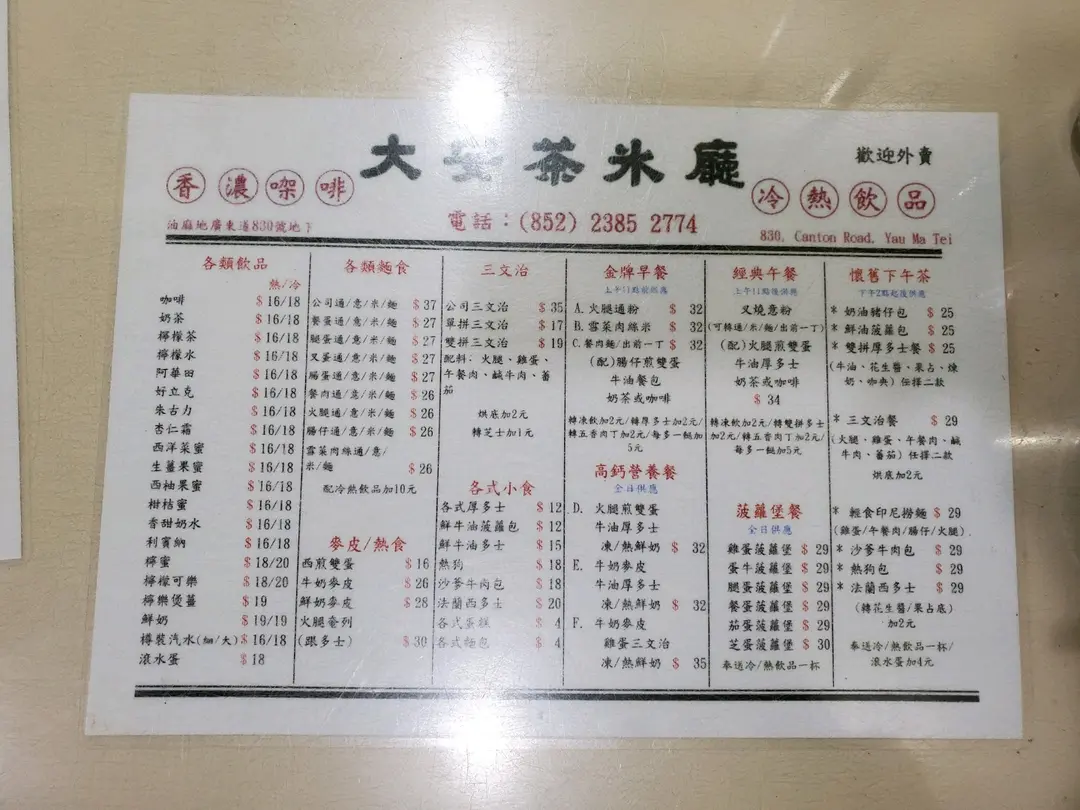 大安茶氷廳
歡迎外賣
香濃㗎啡
冷熱飲品
油麻地廣東道830號地下
電話：(852) 2385 2774
830, Canton Road. Yau Ma Tei
各類飲品
熱/冷
咖啡 $ 16/18
奶茶 $ 16/18
檸檬茶 $ 16/18
檸檬水 $ 16/18
阿華田 $ 16/18
好立克 $ 16/18
朱古力 $ 16/18
杏仁霜 $ 16/18
西洋菜蜜 $ 16/18
生薑果蜜 $ 16/18
西柚果蜜 $ 16/18
柑桔蜜 $ 16/18
香甜奶水 $ 16/18
利賓納 $ 16/18
檸蜜 $ 18/20
檸檬可樂 $ 18/20
檸樂煲薑 $ 19
鮮奶 $ 19/19
樽裝汽水(細/大) $ 16/18
滾水蛋 $ 18
各類麵食
公司通/意/米/麵 $ 37
餐蛋通/意/米/麵 $ 27
腿蛋通/意/米/麵 $ 27
叉蛋通/意/米/麵 $ 27
腸蛋通/意/米/麵 $ 27
餐肉通/意/米/麵 $ 26
火腿通/意/米/麵 $ 26
腸仔通/意/米/麵 $ 26
雪菜肉絲通/意/
米/麵 $ 26
配冷熱飲品加10元
麥皮/熱食
西煎雙蛋 $ 16
牛奶麥皮 $ 26
鮮奶麥皮 $ 28
火腿奄列
(跟多士) $ 30
三文治
公司三文治 $ 35
單拼三文治 $ 17
雙拼三文治 $ 19
配料：火腿、雞蛋、
午餐肉、鹹牛肉、蕃
茄
烘底加2元
轉芝士加1元
各式小食
各式厚多士 $ 12
鮮牛油菠蘿包 $ 12
鮮牛油多士 $ 15
熱狗 $ 18
沙爹牛肉包 $ 18
法蘭西多士 $ 20
各式蛋糕 $ 4
各式麵包 $ 4
金牌早餐
上午11點前供應
A. 火腿通粉 $ 32
B. 雪菜肉絲米 $ 32
C. 餐肉麵/出前一丁 $ 32
(配)腸仔煎雙蛋
牛油餐包
奶茶或咖啡
轉凍飲加2元/轉厚多士加2元/
轉五香肉丁加2元/每多一餸加
5元
高鈣營養餐
全日供應
D. 火腿煎雙蛋
牛油厚多士
凍/熱鮮奶 $ 32
E. 牛奶麥皮
牛油厚多士
凍/熱鮮奶 $ 32
F. 牛奶麥皮
雞蛋三文治
凍/熱鮮奶 $ 35
經典午餐
上午11點後供應
叉燒意粉
(可轉通/米/麵/出前一丁)
(配)火腿煎雙蛋
牛油厚多士
奶茶或咖啡
$ 34
轉凍飲加2元/轉雙拼多士
加2元/轉五香肉丁加2元/
每多一餸加5元
菠蘿堡餐
全日供應
雞蛋菠蘿堡 $ 29
蛋牛菠蘿堡 $ 29
腿蛋菠蘿堡 $ 29
餐蛋菠蘿堡 $ 29
茄蛋菠蘿堡 $ 29
芝蛋菠蘿堡 $ 30
奉送冷/熱飲品一杯
懷舊下午茶
下午2點起後供應
* 奶油豬仔包 $ 25
* 鮮油菠蘿包 $ 25
* 雙拼厚多士餐 $ 25
(牛油、花生醬、果占、煉
奶、咖央) 任擇二款
* 三文治餐 $ 29
(火腿、雞蛋、午餐肉、鹹
牛肉、蕃茄) 任擇二款
烘底加2元
* 輕食印尼撈麵 $ 29
(雞蛋/午餐肉/腸仔/火腿)
* 沙爹牛肉包 $ 29
* 熱狗包 $ 29
* 法蘭西多士 $ 29
(轉花生醬/果占底)
加2元
奉送冷/熱飲品一杯/
滾水蛋加4元